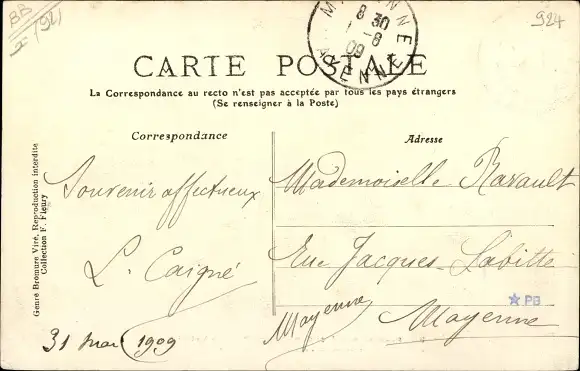 BB
1921
924
MAYENNE
8 30
1 -6
09
MAYENNE
CARTE POSTALE
La Correspondance au recto n'est pas acceptée par tous les pays étrangers
(Se renseigner à la Poste)
Correspondance
Adresse
Souvenir affectueux
L. Caigné
31 mai 1909
Mademoiselle Ravault
Rue Jacques-Labitte
Mayenne
Mayenne
PB
Genre Bromure Viré, Reproduction interdite
Collection F. Fleury